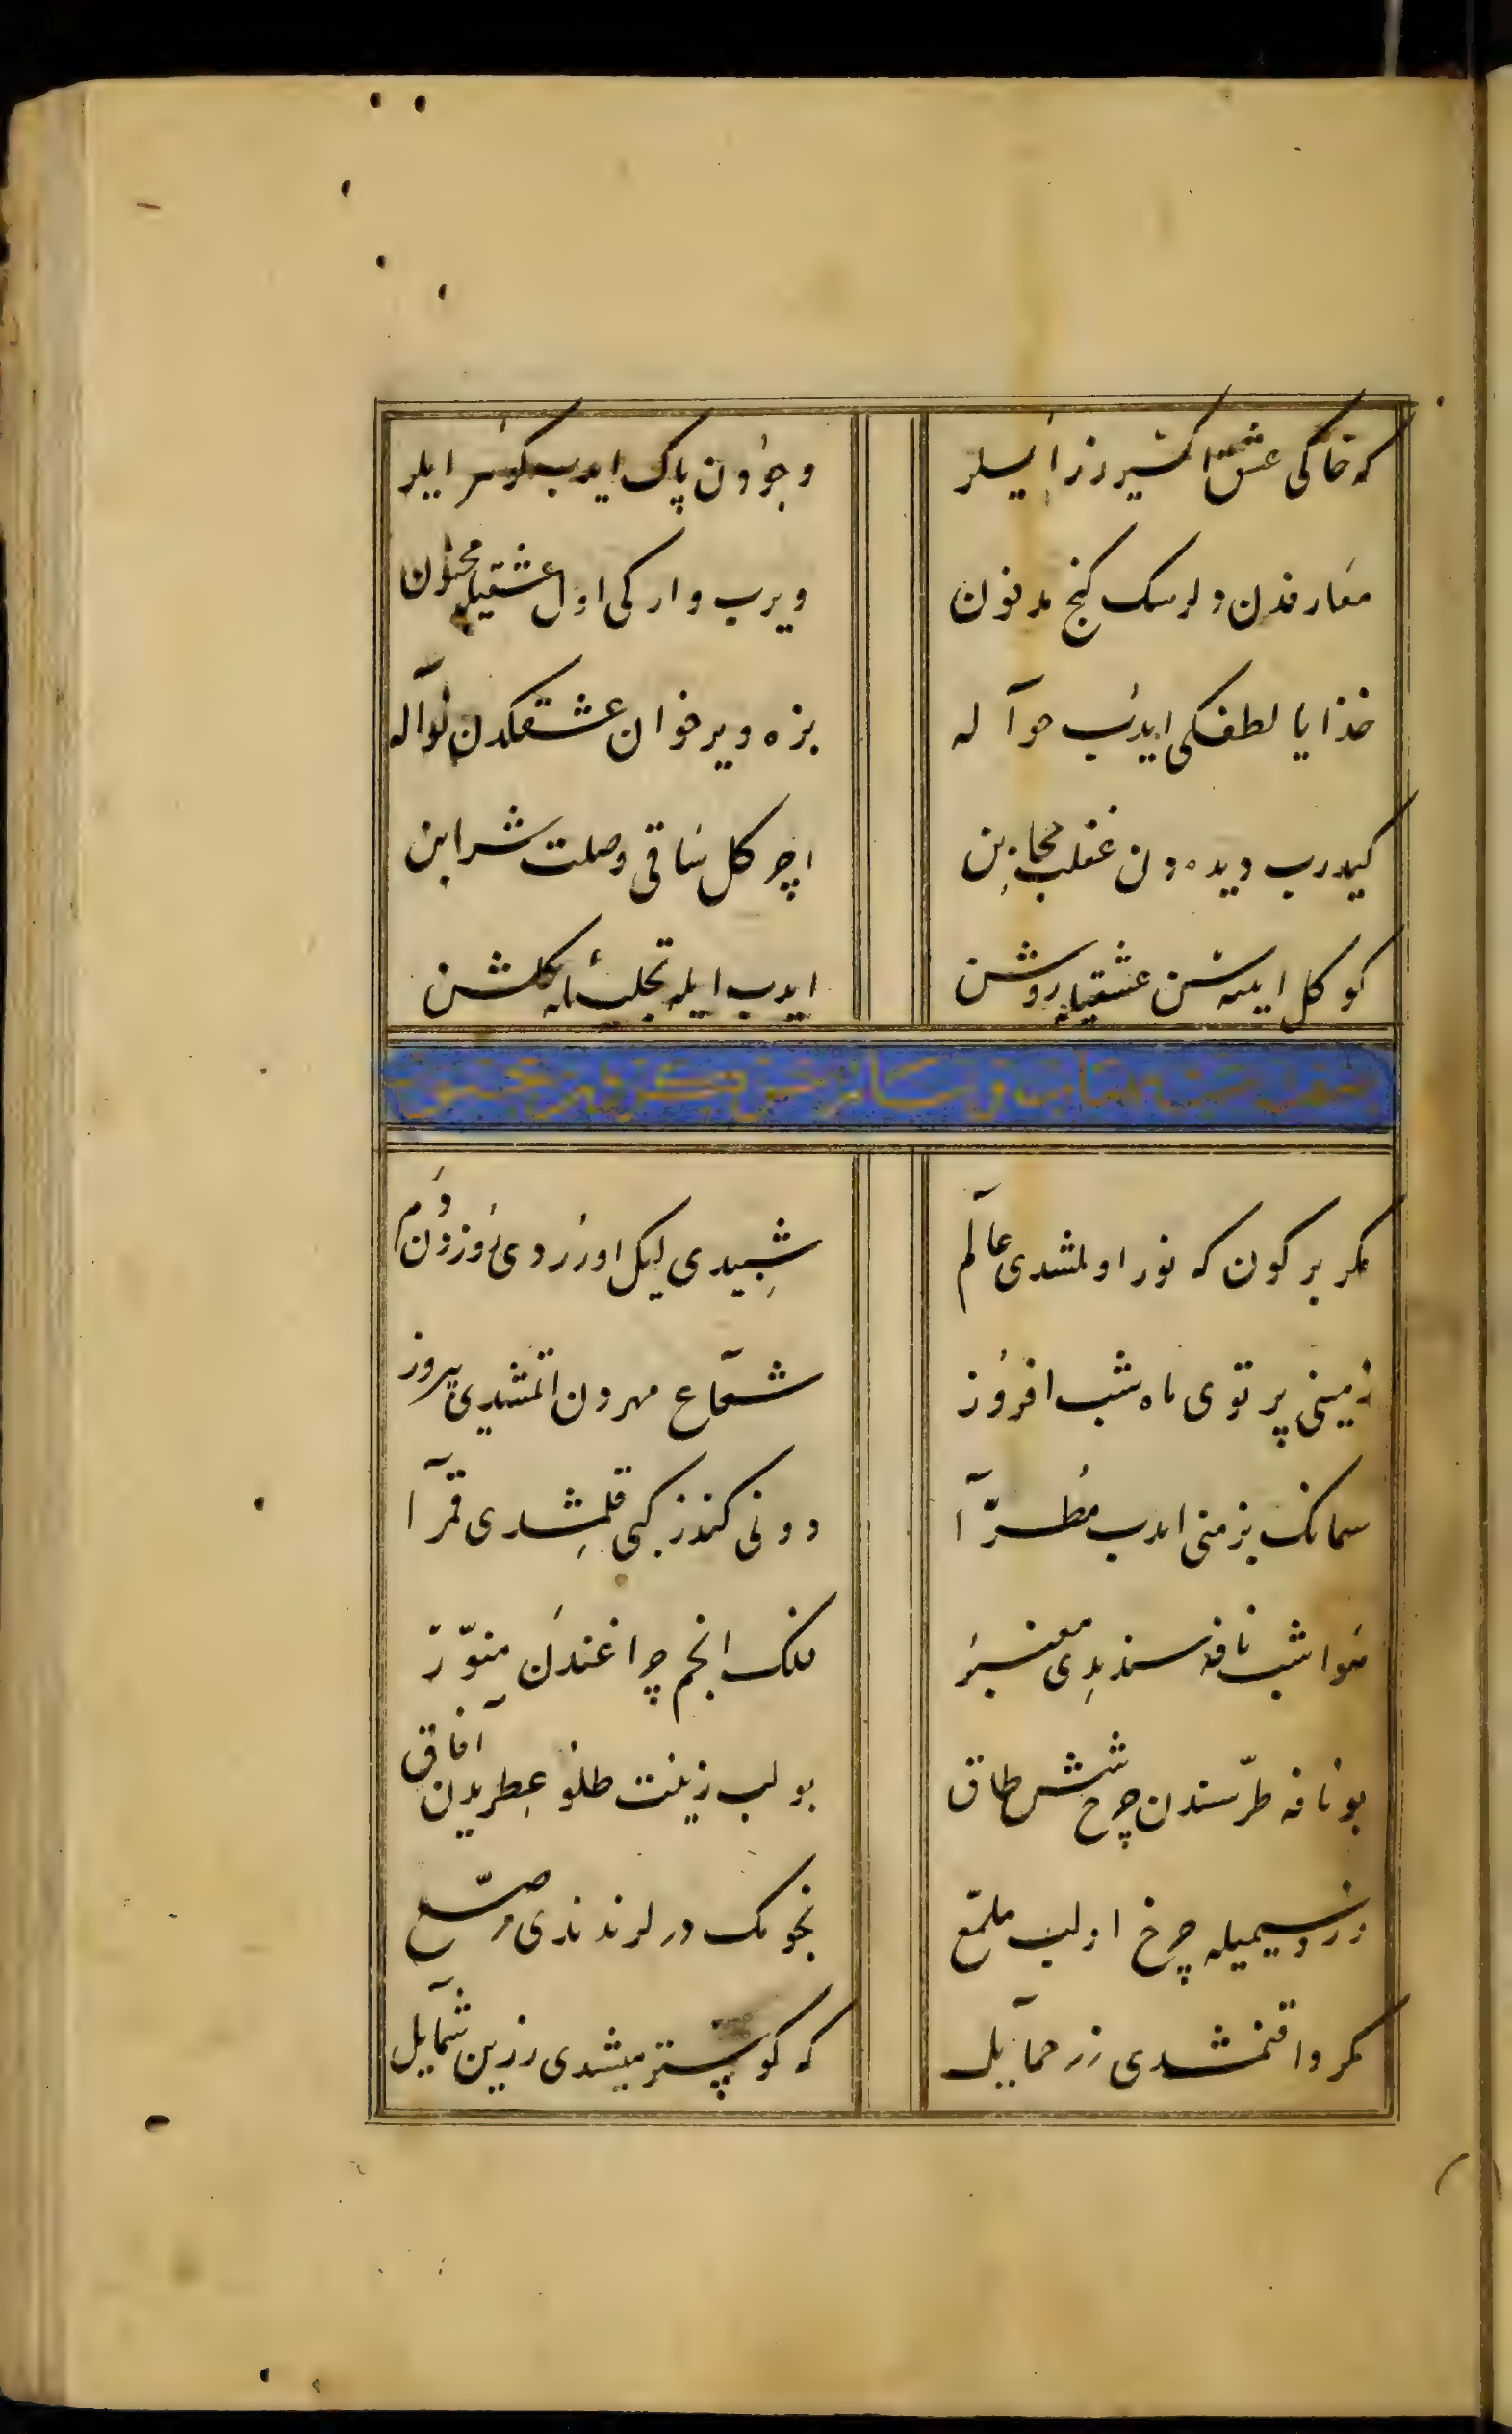 که خاکی عشق اکسیر زر ایلر وجودن پاک ایدب کوهر ایلر
معارفدن دلرسک کنج مدفون ویرب وارکی اول عشقیله مجنون
خدایا لطفکی ایدب حواله بزه ویر خوان عشقکدن نواله
کیدرب دیده دن غفلت حجابن اچر کل ساقی وصلت شرابن
کوکل ایینه سن عشقیله روشن ایدب ایله تجلیئله کلشن
مکر بر کون که نور اولمشدی عالم شبیدی لیک اوزردی روزدن دم
زمینی پرتوی ماه شب افروز شعاع مهردن اتمشدی پیروز
سمانک بزمنی ایدب مطرّا دونی کندز کبی قلمشدی قمرا
هوا شب نافه سندیدی معنبر فلک انجم چراغندن منوّر
بو نافه طرّسندن چرخ شش طاق بولب زینت طلو عطریدن آفاق
زر و سیمیله چرخ اولب ملمّع نجومک درلرندندی مرصّع
مکر داقنمشدی زر حمایل که کوسترمشدی زرین شمایل